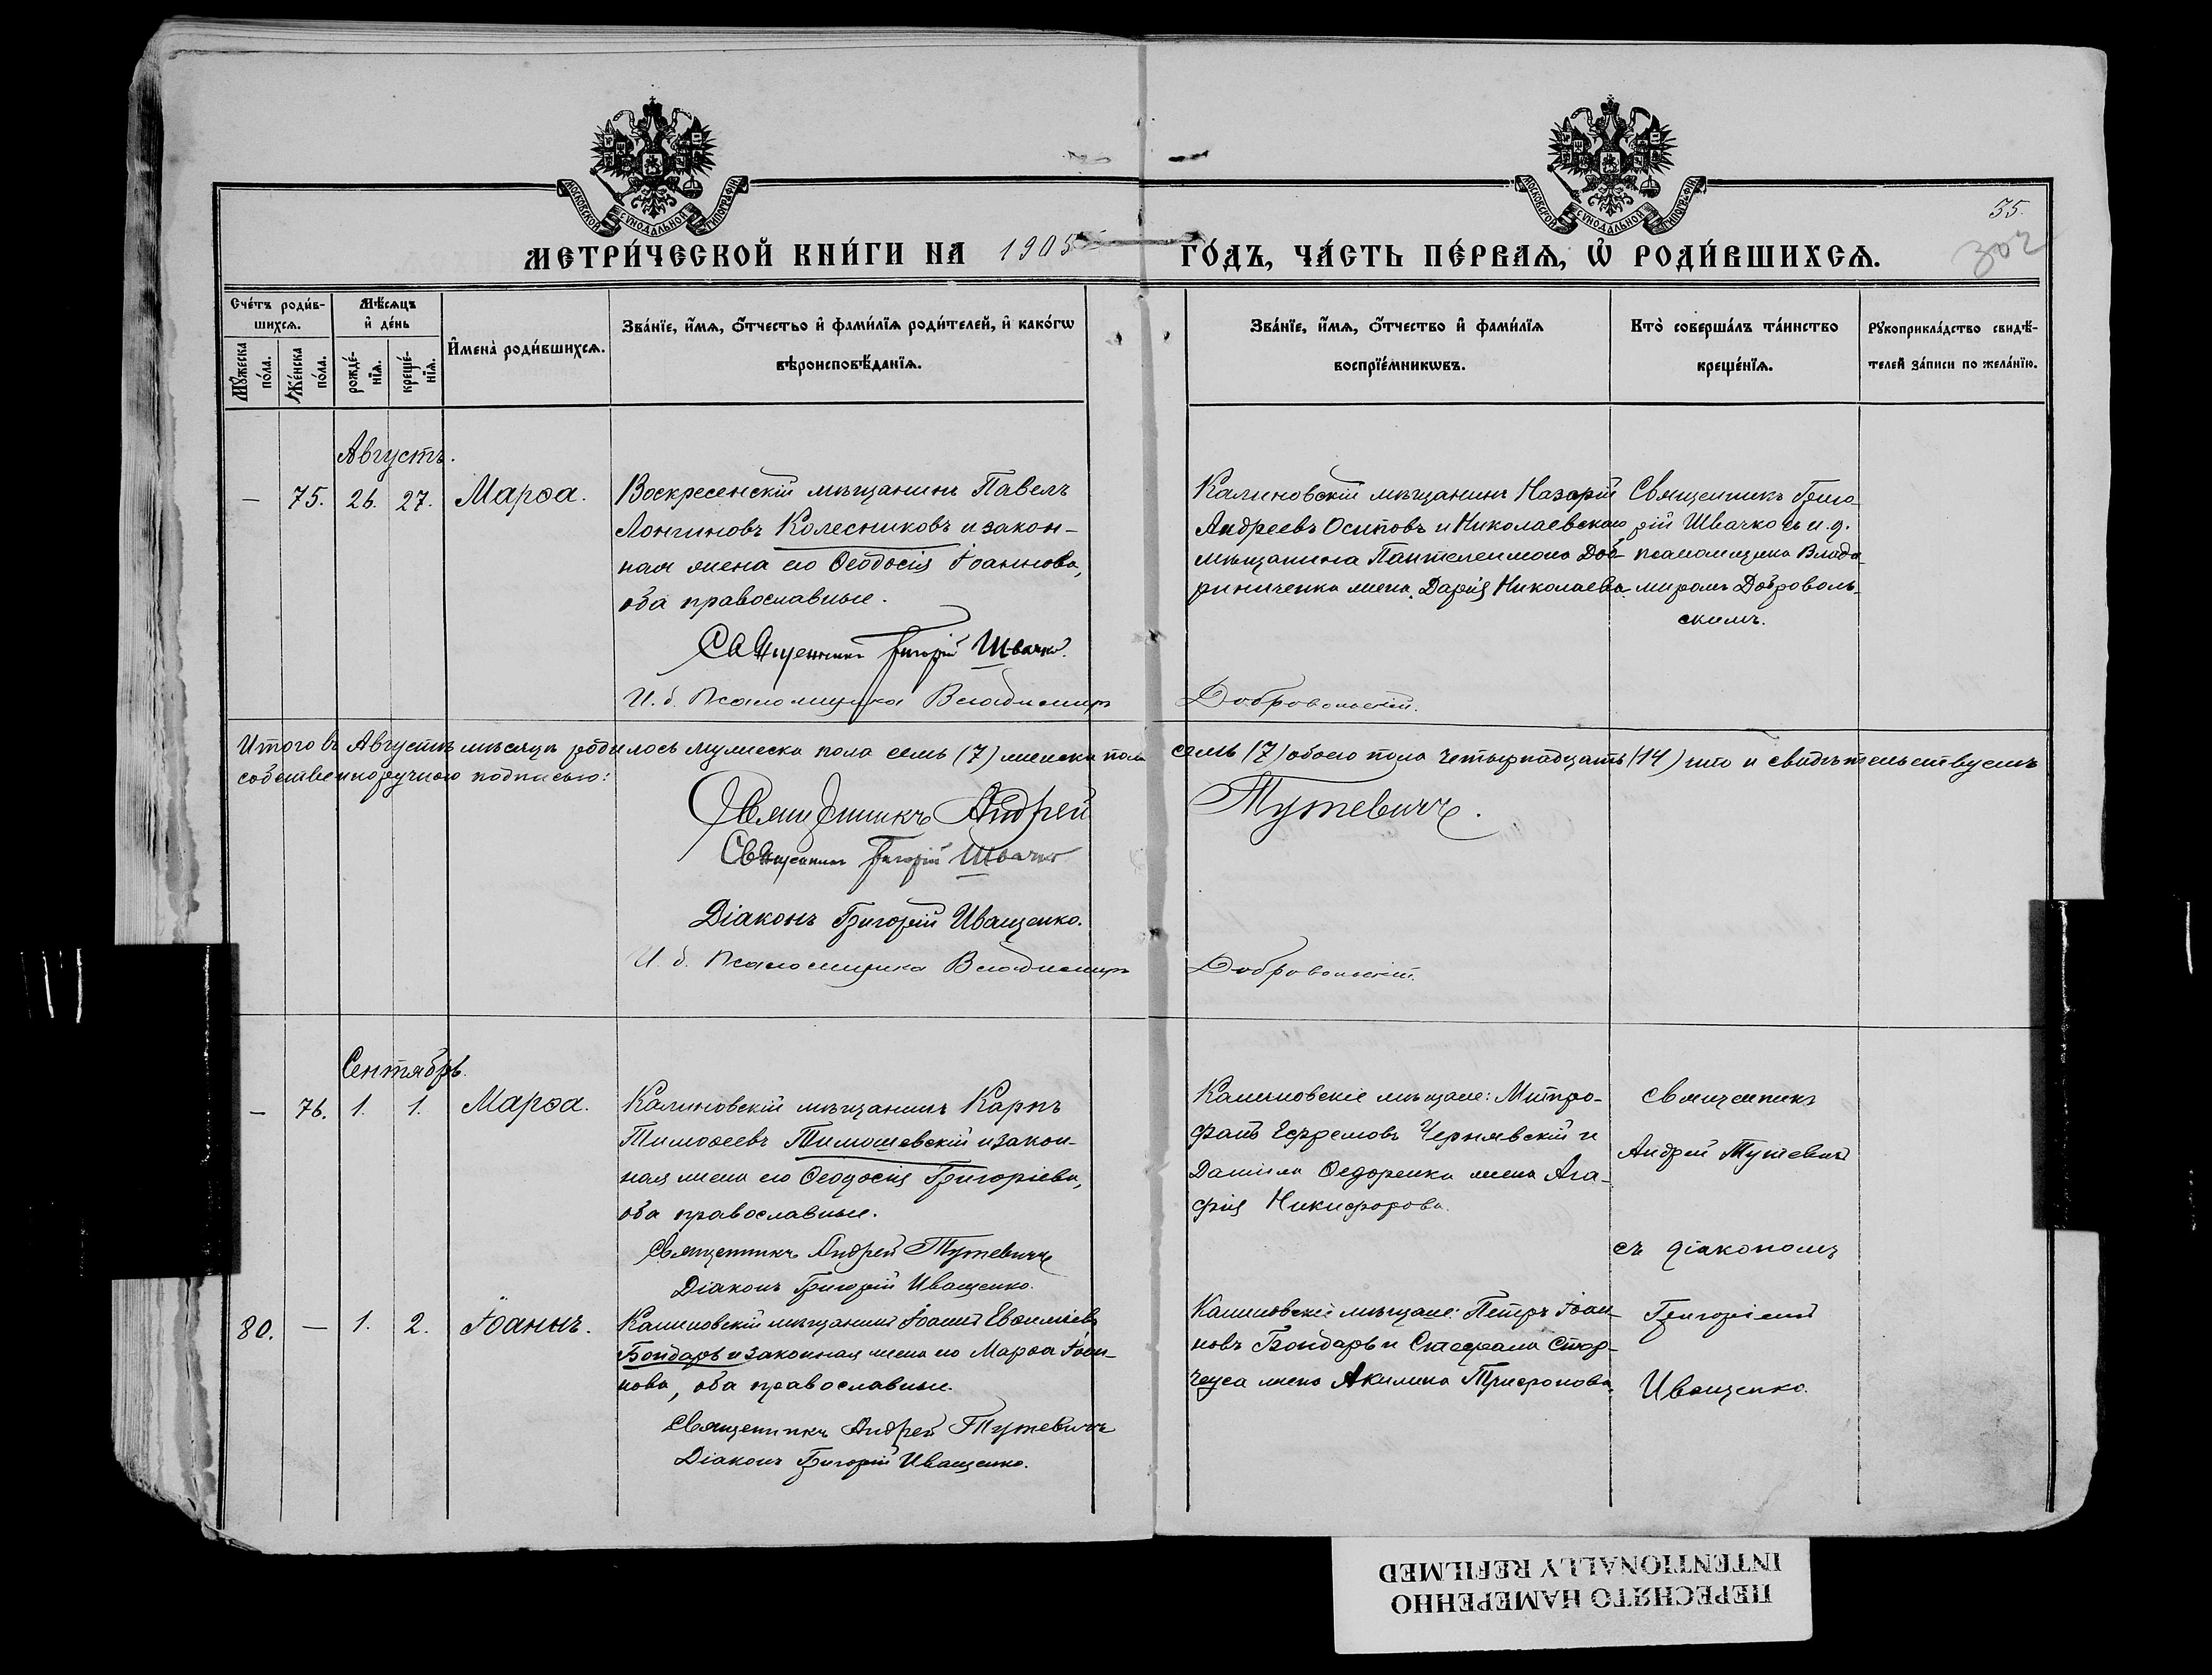 МОСКОВСКОЙ СУНОДАЛЬНОЙ ТИПОГРАФІИ.
МОСКОВСКОЙ СУНОДАЛЬНОЙ ТИПОГРАФІИ.
35.
302
МЕТРИ́ЧЕСКОЙ КНИ́ГИ НА 1905 ГО́ДЪ, ЧА́СТЬ ПЕ́РВАѦ, Ѡ҆ РОДИ́ВШИХСѦ.
Сче́тъ роди́в-
шихсѧ.
Мѣ́сѧцъ
и҆ де́нь
Мꙋ́жеска
по́ла.
Же́нска
по́ла.
рожде́-
нїѧ.
креще́-
нїѧ.
И҆мена̀ роди́вшихсѧ.
Зва́нїе, и҆́мѧ, ѻ҆́тчество и҆ фами́лїѧ роди́телей, и҆ како́гѡ
вѣроисповѣ́данїѧ.
Зва́нїе, и҆́мѧ, ѻ҆́тчество и҆ фами́лїѧ
воспрїе́мникѡвъ.
Кто̀ соверша́лъ та́инство
креще́нїѧ.
Рꙋкоприкла́дство свидѣ́-
телей за́писи по жела́нїю.
Августъ.
— 75. 26. 27. Марѳа.
Воскресенскій мѣщанинъ Павелъ
Лонгиновъ Колесниковъ и закон-
ная жена его Ѳеодосія Іоаннова,
оба православные.
Священникъ Григорій Швачко.
И. д. Псаломщика Владимиръ Добровольскій.
Калиновскій мѣщанинъ Назарій
Андреевъ Осиповъ и Николаевскаго
мѣщанина Пантелеимона Доб-
риниченка жена, Дарія Николаева.
Священникъ Григо-
рій Швачко съ и. д.
псаломщика Влади-
миромъ Доброволь-
скимъ.
Итого въ Августѣ мѣсяцѣ родилось мужеска пола семь (7) женска пола семь (7) обоего пола четырнадцать (14) что и свидѣтельствуемъ
собственноручною подписью:
Священникъ Андрей Тутевичъ.
Священникъ Григорій Швачко
Діаконъ Григорій Иващенко.
И. д. Псаломщика Владимиръ Добровольскій.
Сентябрь.
— 76. 1. 1. Марѳа.
Калиновскій мѣщанинъ Карпъ
Тимоѳеевъ Тимошевскій и закон-
ная жена его Ѳеодосія Григоріева,
оба православные.
Священникъ Андрей Тутевичъ
Діаконъ Григорій Иващенко.
Калиновскіе мѣщане: Митро-
фанъ Ефремовъ Чернявскій и
Даніила Ѳедоренка жена Ага-
фія Никифорова.
Священникъ
Андрей Тутевичъ
съ діакономъ
Григоріемъ
Иващенко.
80. — 1. 2. Іоаннъ.
Калиновскій мѣщанинъ Іоаннъ Евѳиміевъ
Бондарь и законная жена его Марѳа Іоан-
нова, оба православные.
Священникъ Андрей Тутевичъ
Діаконъ Григорій Иващенко.
Калиновскіе мѣщане: Петръ Іоан-
новъ Бондарь и Стефана
жена Акилина Трифонова.
ПЕРЕСНЯТО НАМЕРЕННО
INTENTIONALLY REFILMED